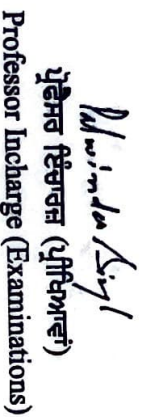 Palwinder Singh
ਪ੍ਰੋਫੈਸਰ ਇੰਚਾਰਜ (ਪ੍ਰੀਖਿਆਵਾਂ)
Professor Incharge (Examinations)